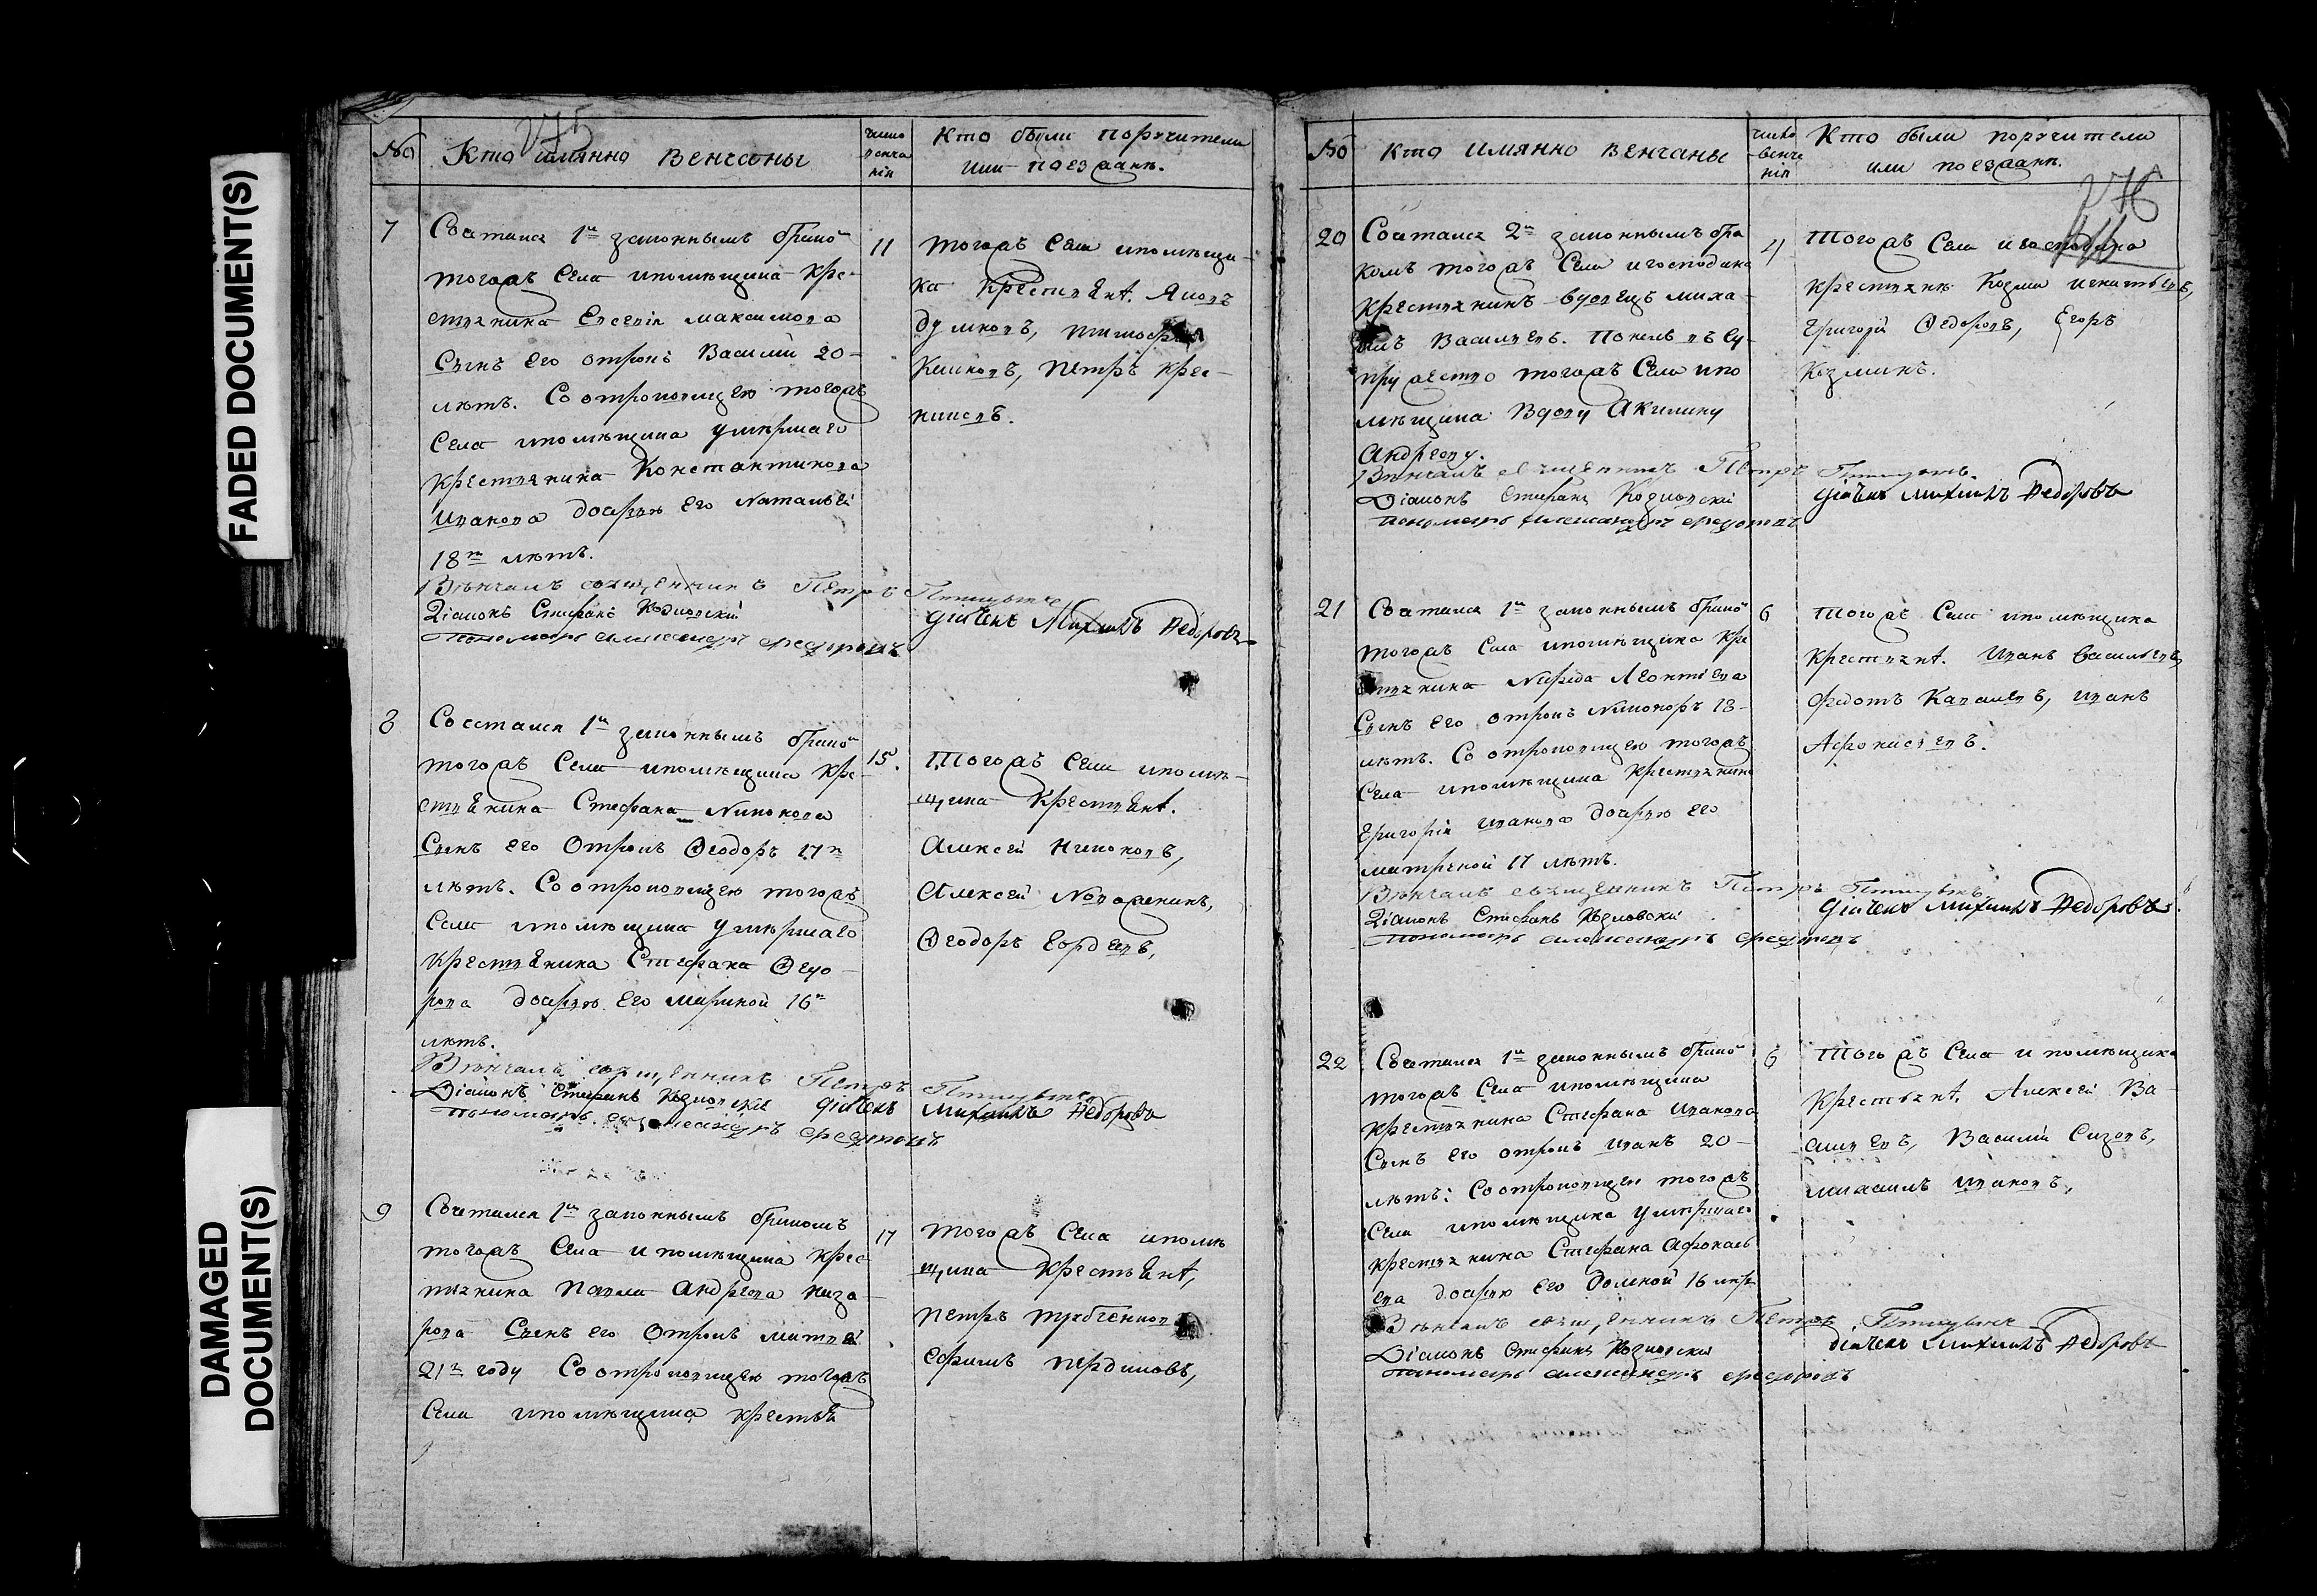 FADED DOCUMENT(S)
DAMAGED
DOCUMENT(S)
275
№
Кто имянно венчаны
число
венча
нія
Кто были поручители
или поезжанѣ.
7
Сочтался 1м законнымъ бракомъ
тогожъ Села ипомѣщика Кре-
стьянина Евсевія максимова
Сынъ его отрокъ Василій 20-
лѣтъ. Со отроковицею тогожъ
Села ипомѣщика умершаго
крестьянина Константинова
Иванова дочерью его Натальей
18ти лѣтъ.
Вѣнчалъ священникъ Петръ
Діаконъ Стефанъ Козловскій
пономарь александръ
11
тогожъ Села ипомѣщи-
ка Крестьянѣ. Яковъ
Петръ
діячекъ Михаилъ Федоровъ
8
Сочетался 1м законнымъ бракомъ
тогожъ Села ипомѣщика Кре-
стьянина Стефана Никонова
Сынъ его Отрокъ Ѳеодоръ 17ти
лѣтъ. Со отроковицею тогожъ
Села ипомѣщика умершаго
Крестьянина Стефана Ѳедо-
рова дочерью его мариной 16ти
лѣтъ.
Вѣнчалъ священникъ Петръ
Діаконъ Стефанъ Козловскій діячекъ Михаилъ Федоровъ
пономарь александръ
15.
Тогожъ Села ипомѣ-
щика Крестьянѣ.
Алексей Никоновъ,
Алексей
Ѳеодоръ Гордевъ,
9
Сочетался 1м законнымъ бракомъ
тогожъ Села и помѣщика крес-
тьянина Павла Андреева наза-
рова Сынъ его Отрокъ матвей
21го году Со отроковицею тогожъ
Села ипомѣщика крестья
17
тогожъ Села ипомѣ
щика Крестьянѣ,
Петръ
ефимъ
№
Кто имянно венчаны
число
венча
нія
Кто были поручители
или поезжанѣ.
276
20
Сочтался 2м законнымъ бра
комъ тогожъ Села игосподина
крестьянинъ вдовецъ миха-
илъ Васильевъ. Поялъ въ Су-
пружество тогожъ Села ипо
мѣщика Вдову Акилину
Андрееву.
Вѣнчалъ священникъ Петръ
Діаконъ Стефанъ Козловскій
пономарь александръ
4
Тогожъ Села игосподина
крестьянѣ Козма игнатьевъ,
Григорій Ѳедоровъ, Егоръ
Козминъ.
діячекъ Михаилъ Федоровъ
21
Сочтался 1м законнымъ бракомъ
тогожъ Села ипомѣщика кре
стьянина Леонтіева
Сынъ его отрокъ Никифоръ 18-
лѣтъ. Со отроковицею тогожъ
Села ипомѣщика крестьянина
Григорія Иванова дочерью его
матреной 17 лѣтъ.
Вѣнчалъ священникъ Петръ
Діаконъ Стефанъ Козловскій
пономарь александръ
6
тогожъ Села ипомѣщика
крестьянѣ. Иванъ васильевъ,
Федотъ иванъ
Афонасьевъ.
діячекъ Михаилъ Федоровъ
22
Сочетался 1м законнымъ бракомъ
тогожъ Села ипомѣщика
крестьянина Стефана Иванова
Сынъ его отрокъ Иванъ 20-
лѣтъ: Со отроковицею тогожъ
Села ипомѣщика умершаго
крестьянина Стефана Афонась
ева дочерью его Домной 16 лѣтъ
Вѣнчалъ священникъ Петръ
Діаконъ Стефанъ Козловскій
пономарь александръ
6
тогожъ Села и помѣщика
Крестьянѣ, Алексей Ва-
сильевъ, Василій Сизовъ,
Ивановъ,
діячекъ Михаилъ Федоровъ